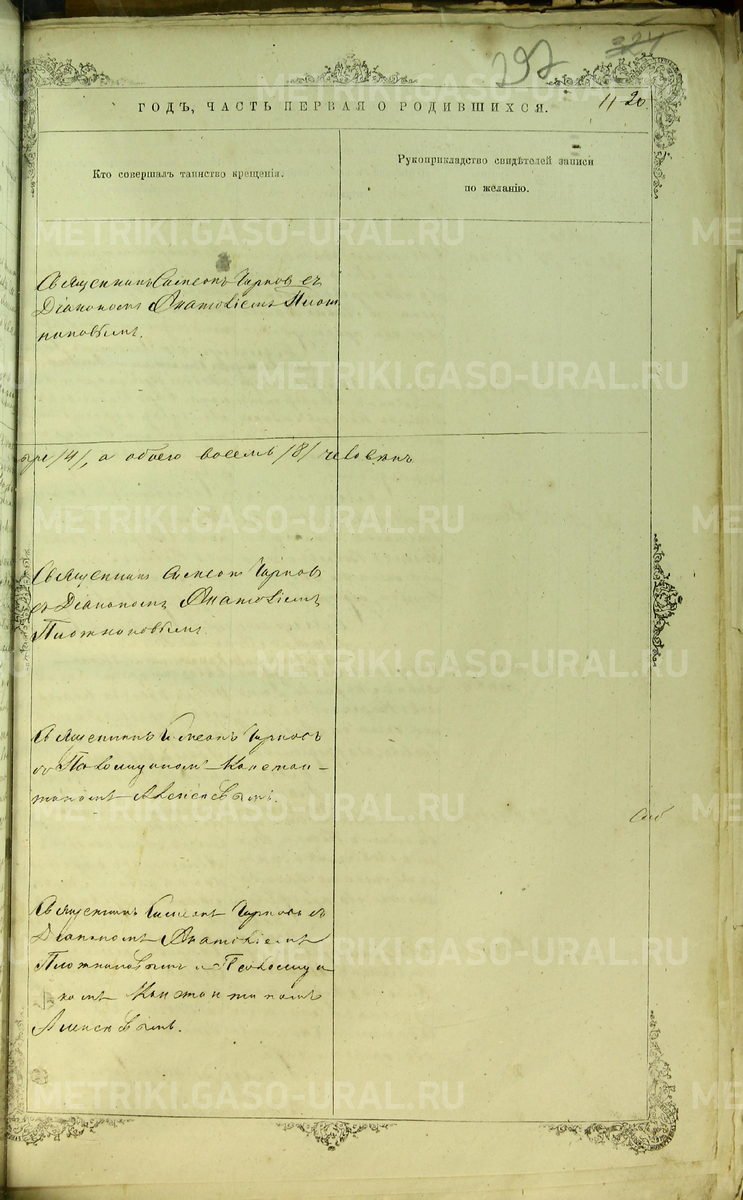 297
ГОДЪ, ЧАСТЬ ПЕРВАЯ О РОДИВШИХСЯ. 11 20
Кто совершалъ таинство крещенія.
Рукоприкладство свидѣтелей записи
по желанію.
Священникъ Симеонъ Чирковъ съ
Діакономъ Анатоліемъ Плот
никовымъ.
/4/, а обоего восемь /8/ человѣкъ
Священникъ Симеонъ Чирковъ
съ Діакономъ Анатоліемъ
Плотниковымъ
Священникъ Симеонъ Чирковъ
Псаломщикомъ Констан-
тиномъ Алексѣевымъ.
Священникъ Симеонъ Чирковъ съ
Діакономъ Анатоліемъ
Плотниковымъ и Псаломщи
комъ Константиномъ
Алексѣевымъ.
METRIKI.GASO-URAL.RU